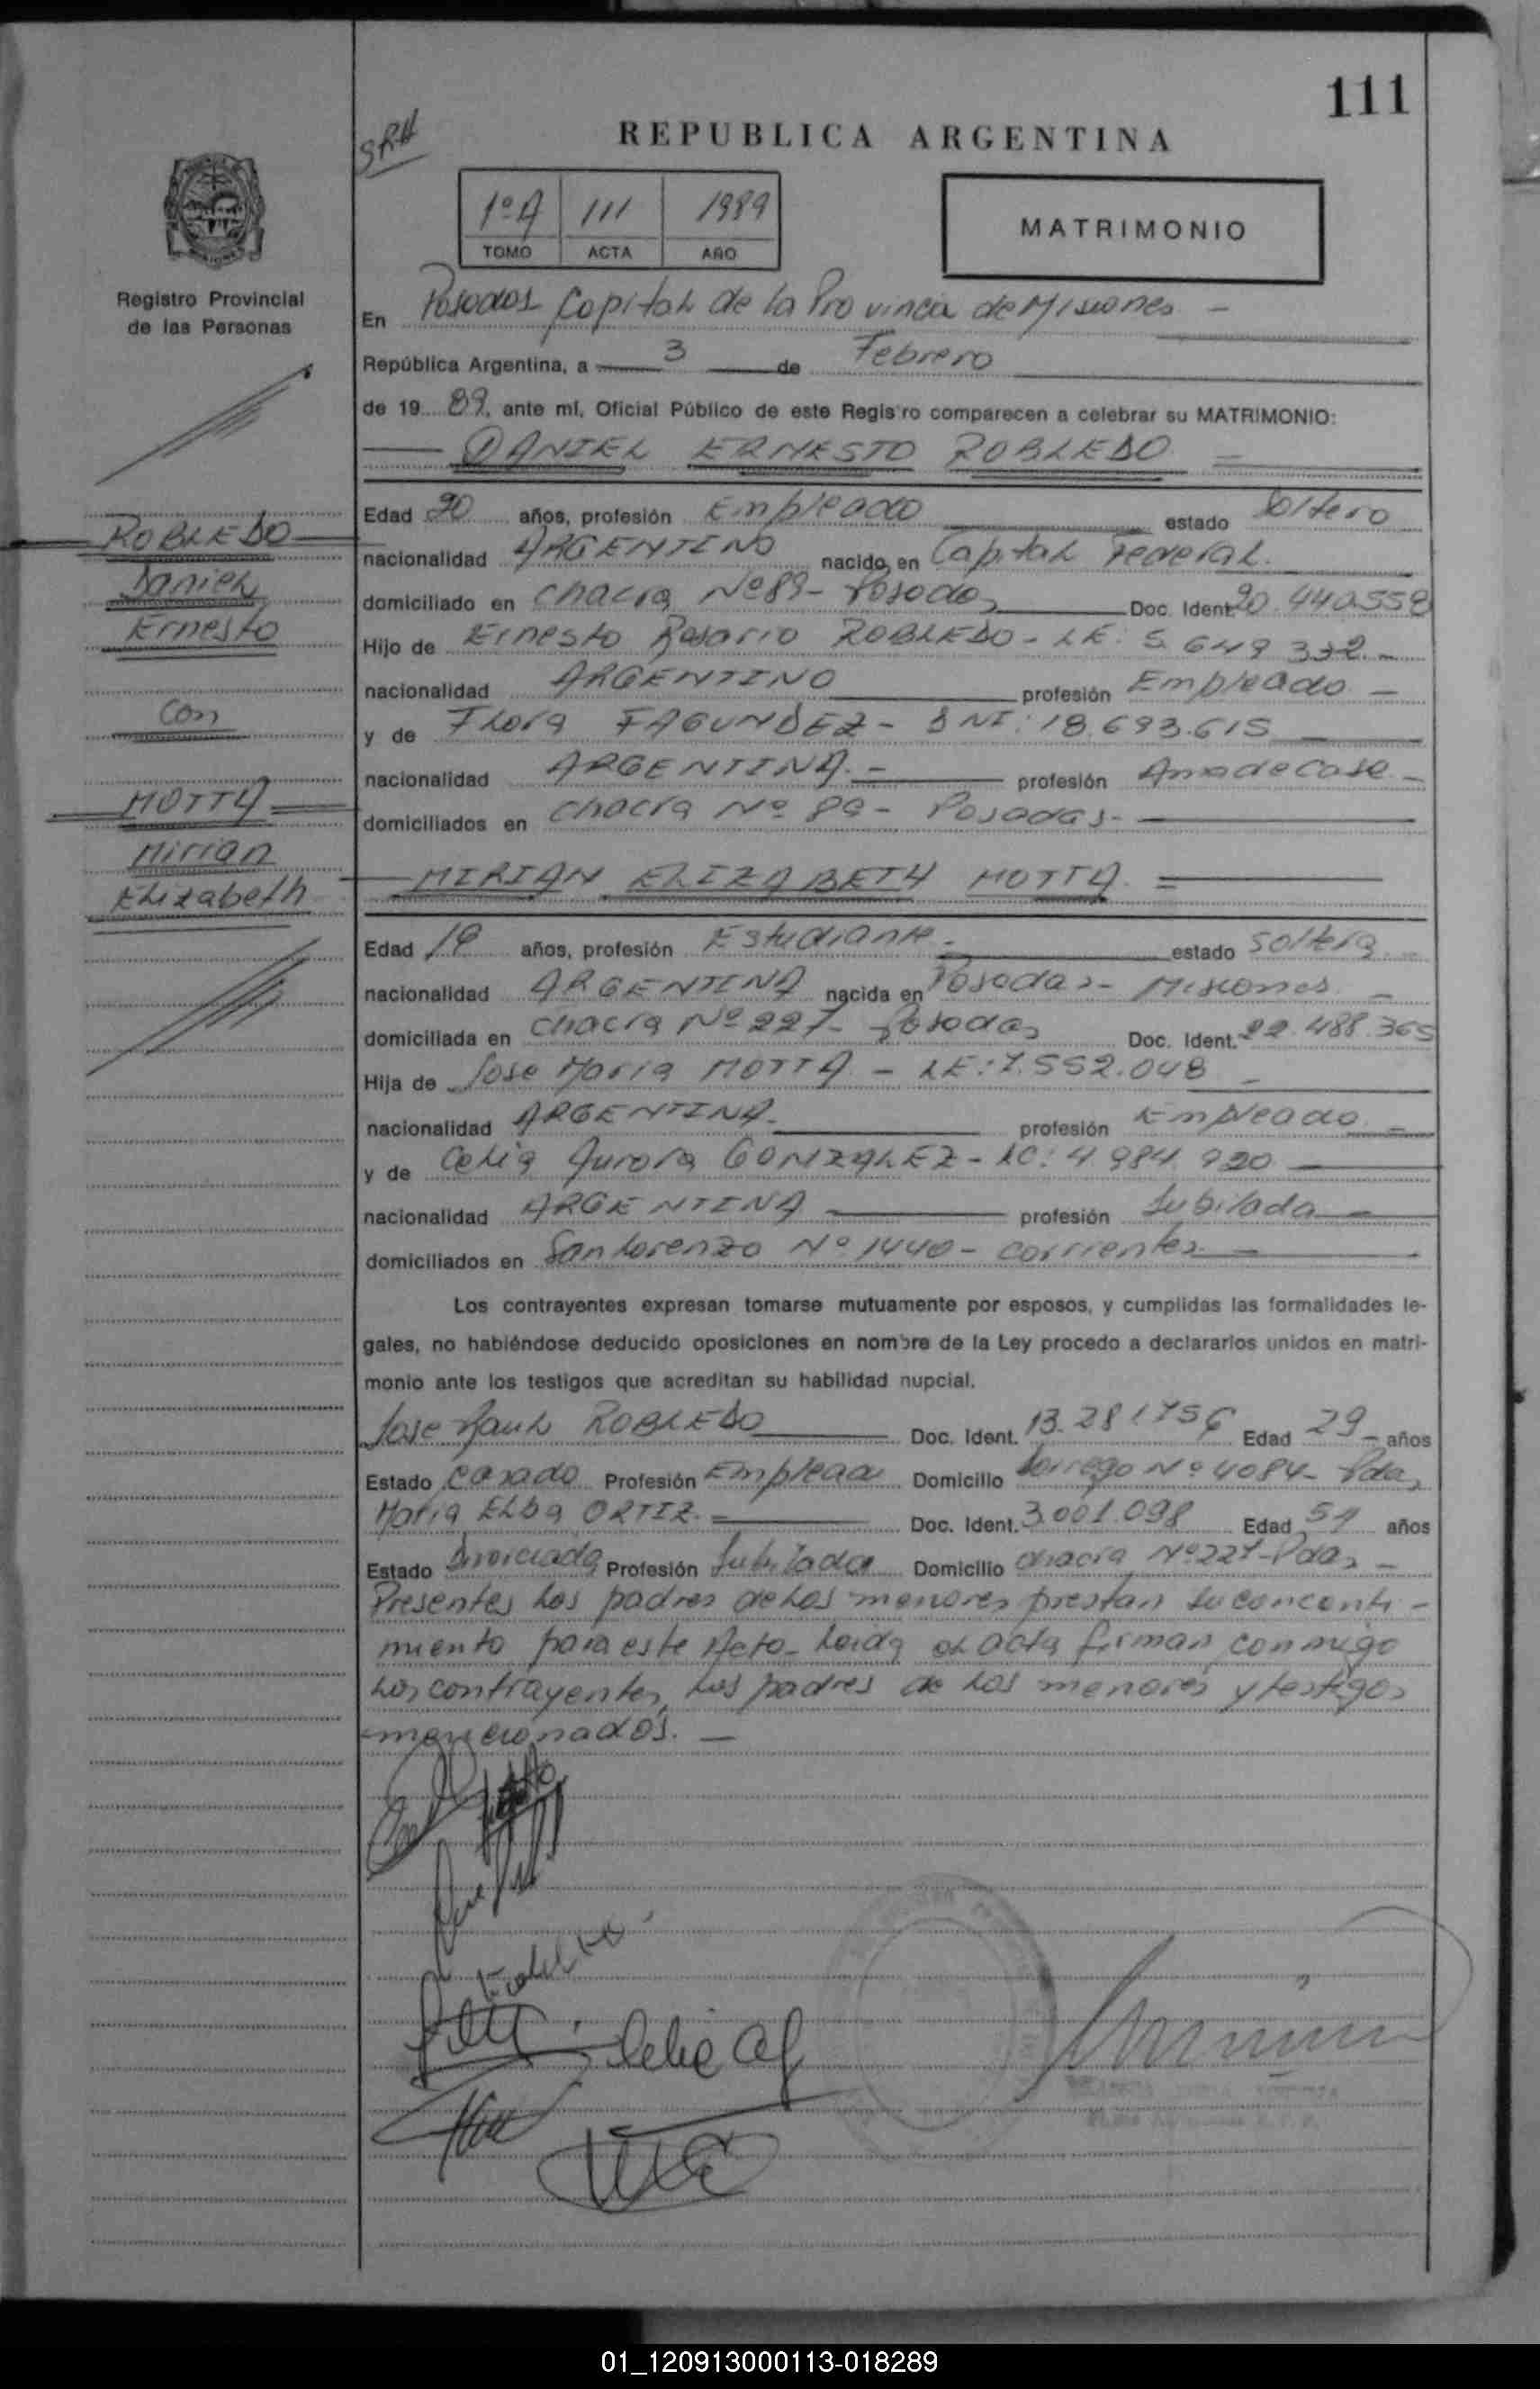 111
SRH
REPUBLICA ARGENTINA
1º A 111 1989
TOMO ACTA AÑO
MATRIMONIO
Registro Provincial
de las Personas
En Posadas Capital de la Provincia de Misiones -
República Argentina, a 3 de Febrero
de 19 89, ante mí, Oficial Público de este Regis ro comparecen a celebrar su MATRIMONIO:
DANIEL ERNESTO ROBLEDO
ROBLEDO
Daniel
Ernesto
con
MOTTA
Mirian
Elizabeth
Edad 20 años, profesión Empleado estado Soltero
nacionalidad ARGENTINO nacido en Capital Federal.
domiciliado en Chacra Nº 89 - Posadas Doc. Ident 20.440.558
Hijo de Ernesto Rosario ROBLEDO - LE: 5.649.332.-
nacionalidad ARGENTINO profesión Empleado -
y de Flora FAGUNDEZ - DNI: 18.693.615
nacionalidad ARGENTINA.- profesión Ama de Casa -
domiciliados en Chacra Nº 89 - Posadas.-
MIRIAN ELIZABETH MOTTA.
Edad años, profesión Estudiante - estado Soltera
nacionalidad ARGENTINA nacida en Posadas - Misiones -
domiciliada en Chacra Nº 227 - Posadas Doc. Ident. 22.488.365
Hija de Jose Maria MOTTA - LE: 7.552.048 -
nacionalidad ARGENTINA.- profesión Empleado -
y de Celia Aurora GONZALEZ - LC: 4.984.920
nacionalidad ARGENTINA profesión Jubilada
domiciliados en San Lorenzo Nº 1440 - Corrientes. -
Los contrayentes expresan tomarse mutuamente por esposos, y cumplidas las formalidades le-
gales, no habiéndose deducido oposiciones en nombre de la Ley procedo a declararlos unidos en matri-
monio ante los testigos que acreditan su habilidad nupcial.
Jose Raul ROBLEDO Doc. Ident. 13.281756 Edad 29 años
Estado Casado Profesión Empleado Domicilio Dorrego Nº 4084 - Pdas
Maria Elba ORTIZ. Doc. Ident. 3.001.098 Edad años
Estado Divorciada Profesión Jubilada Domicilio Chacra Nº 227 - Pdas -
Presentes los padres de los menores prestan su conconti-
miento para este Acto - Leida el acta firman conmigo
los contrayentes, los padres de los menores y testigos
mencionados. -
01_120913000113-018289